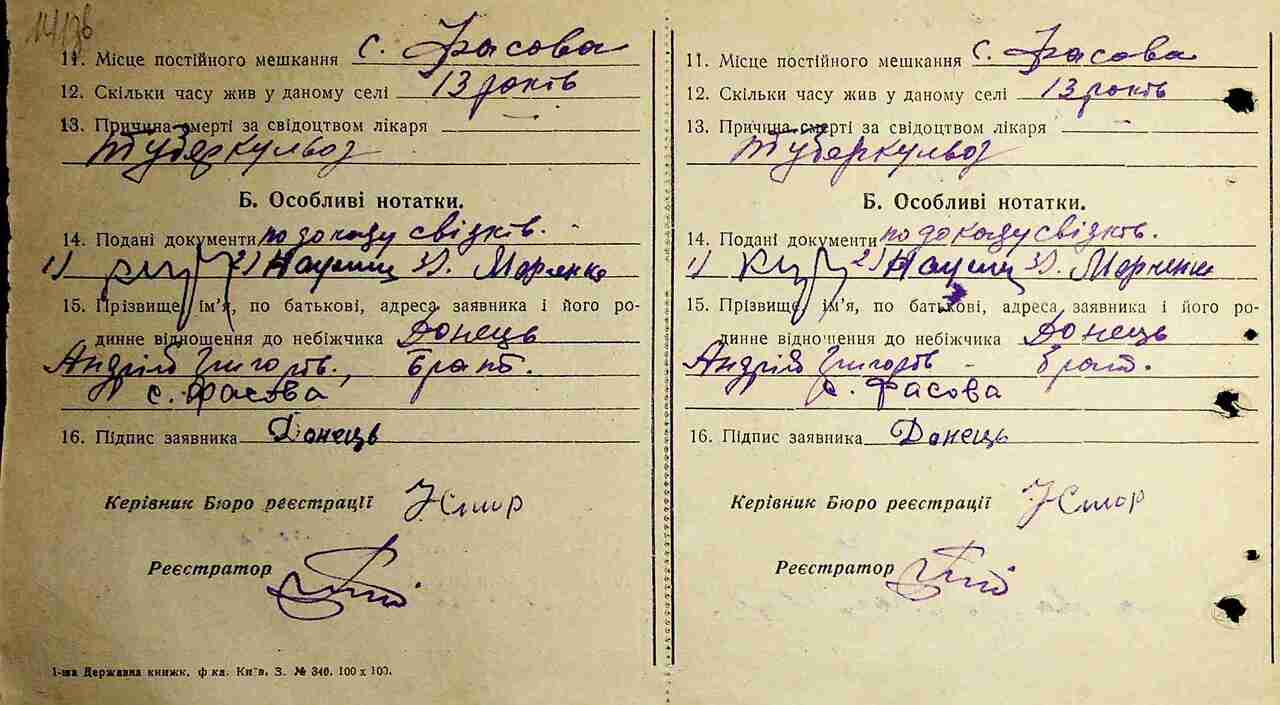 11. Місце постійного мешкання с. Фасова
12. Скільки часу жив у даному селі 13 років
13. Причина смерті за свідоцтвом лікаря
Туберкульоз
Б. Особливі нотатки.
14. Подані документи по доказу свідків.
1) 2) 3). Марченко
15. Прізвище, ім'я, по батькові, адреса заявника і його ро-
динне відношення до небіжчика Донець
Андрій Григорів., брат.
с. Фасова
16. Підпис заявника Донець
Керівник Бюро реєстрації
Реєстратор
1-ша Державна книжк. ф-ка. Київ. З. № 346. 100 х 100.
11. Місце постійного мешкання с. Фасова
12. Скільки часу жив у даному селі 13 років
13. Причина смерті за свідоцтвом лікаря
Туберкульоз
Б. Особливі нотатки.
14. Подані документи по доказу свідків.
1) 2) 3). Марченко
15. Прізвище, ім'я, по батькові, адреса заявника і його ро-
динне відношення до небіжчика Донець
Андрій Григорів - брат.
с. Фасова
16. Підпис заявника Донець
Керівник Бюро реєстрації
Реєстратор